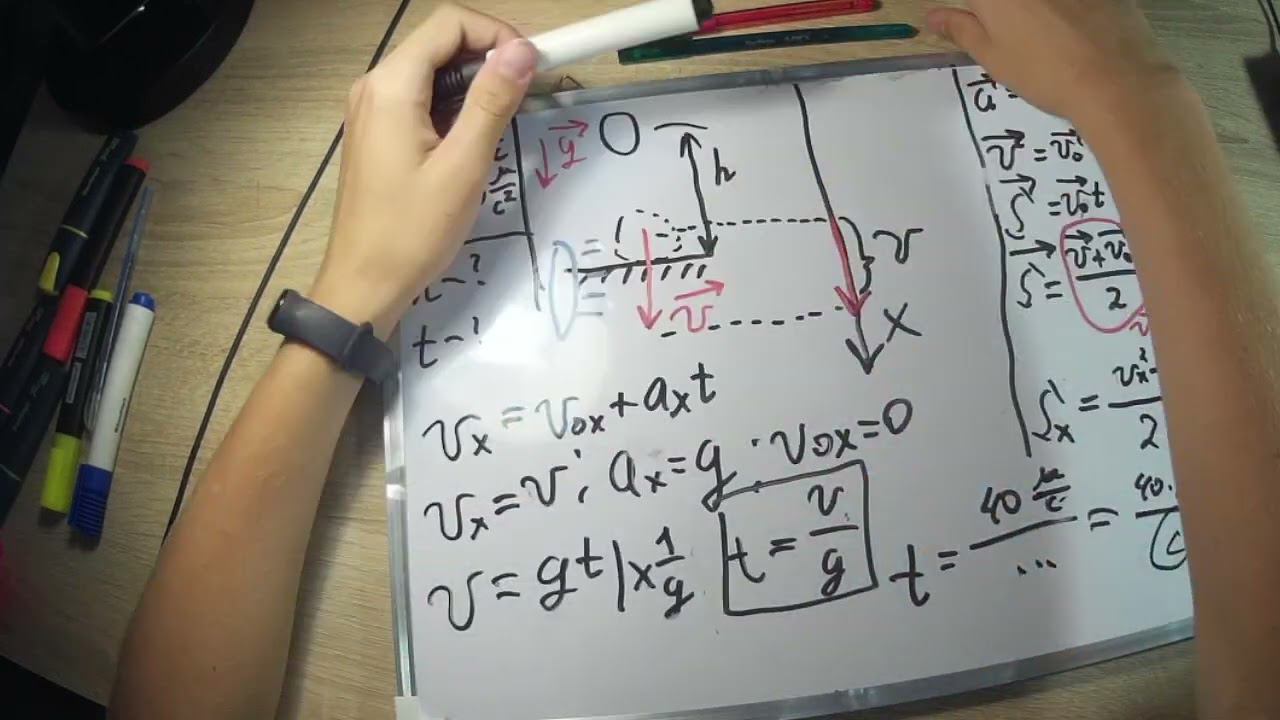 g
h
v
t-?
v
x
vₓ = v₀ₓ + aₓt
vₓ = v; aₓ = g · v₀ₓ = 0
v = gt | x 1/g
t = v/g
t = 40 м/с / ... = 40.
v = v₀
S = v₀t
S = v + v₀ / 2
Sₓ = vₓ² - / 2